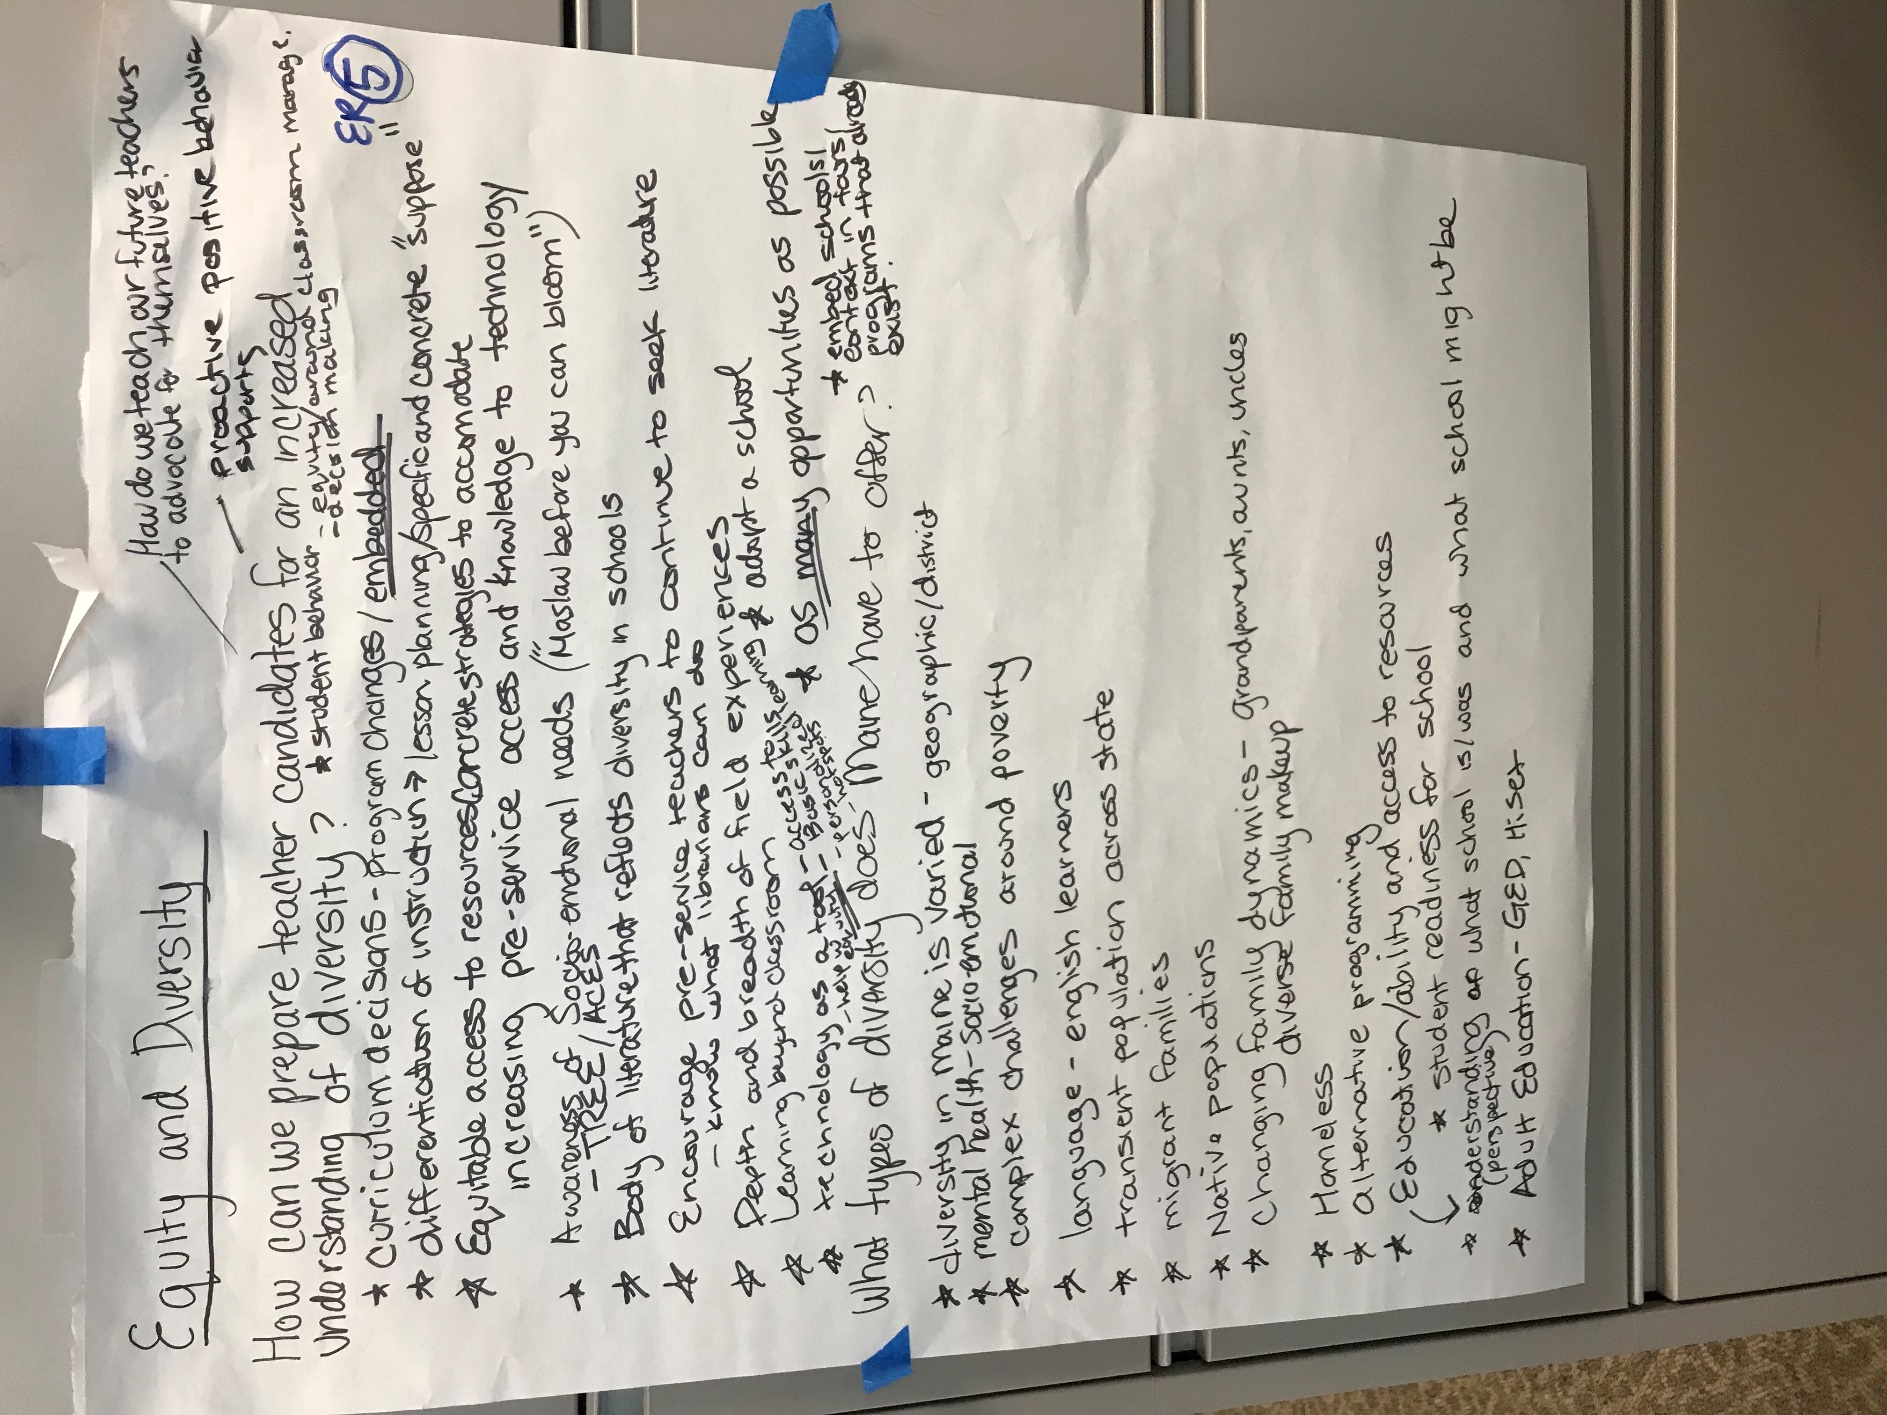 Equity and Diversity
How do we teach our future teachers
to advocate for themselves?
- proactive positive behavior
supports
ER 5
How can we prepare teacher candidates for an increased
understanding of diversity?
* student behavior - equity/around classroom manage.
- decision making
* curriculum decisions - program changes/embedded
* differentiation of instruction → lesson planning/specific and concrete "suppose"
* Equitable access to resources/concrete strategies to accomodate
increasing pre-service access and knowledge to technology
* Awareness of Socio-emotional needs ("Maslow before you can bloom")
- TREE/ACES
* Body of literature that reflects diversity in schools
* Encourage pre-service teachers to continue to seek literature
- know what librarians can do
* Depth and breadth of field experiences
* adopt a school
* Learning beyond classroom
* as many opportunities as possible
* embed schools/
context in tours/
programs that already
exist.
* technology as a tool - access to
- Basic skills
- personalized learning
What types of diversity does Maine have to offer?
* diversity in maine is varied - geographic/district
* mental health - socio-emotional
* complex challenges around poverty
* language - english learners
* transient population across state
* migrant families
* Native populations
* Changing family dynamics - grandparents, aunts, uncles
diverse family makeup
* Homeless
* alternative programming
* Education/ability and access to resources
* student readiness for school
* understanding of what school is/was and what school might be
(perspective)
* Adult Education - GED, Hiset